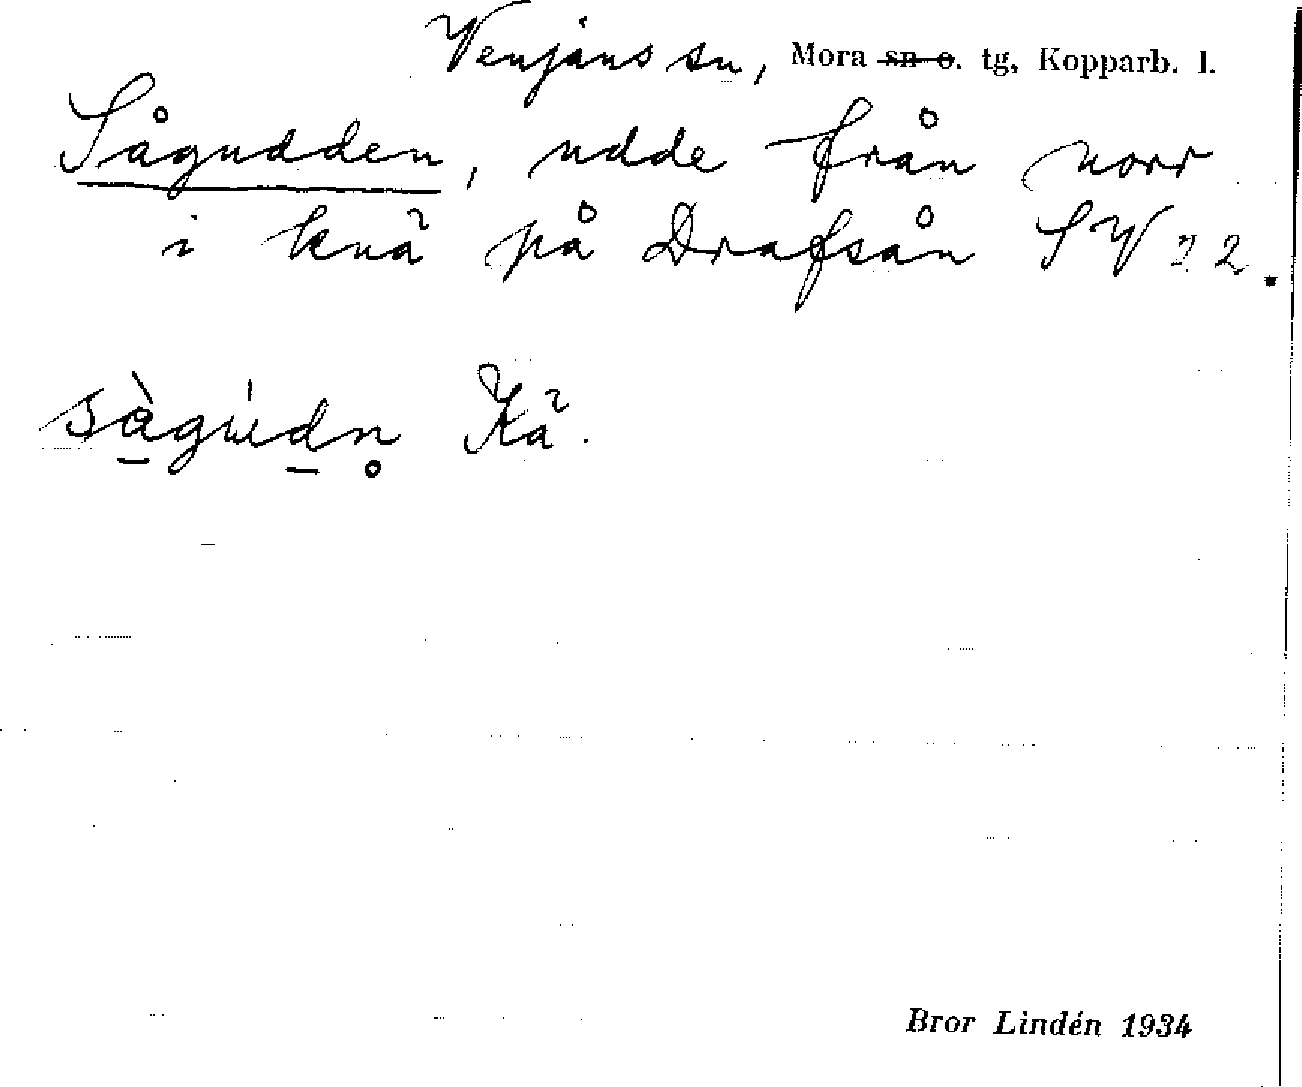 Venjans sn, Mora sn o. tg, Kopparb. l.
Sågudden, udde från norr
i knä på Drafsån SV 22.
sàgúdn Kä.
Bror Lindén 1934